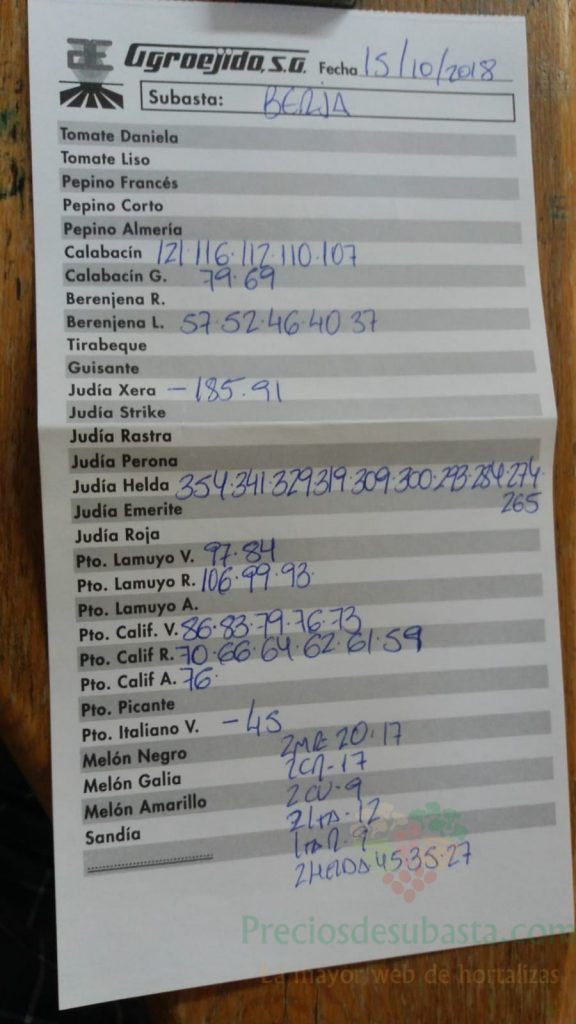 Agroejido, S.A. Fecha 15/10/2018
Subasta: BERJA
Tomate Daniela
Tomate Liso
Pepino Francés
Pepino Corto
Pepino Almería
Calabacín 121·116·112·110·107
Calabacín G. 79·69
Berenjena R.
Berenjena L. 57·52·46·40 37
Tirabeque
Guisante
Judía Xera - 185·91
Judía Strike
Judía Rastra
Judía Perona
Judía Helda 354·341·329 319·309·300·293·284·274
Judía Emerite 265
Judía Roja
Pto. Lamuyo V. 97·84
Pto. Lamuyo R. 106·99·93
Pto. Lamuyo A.
Pto. Calif. V. 86·83·79·76·73
Pto. Calif R. 70·66·64·62·61·59
Pto. Calif A. 76
Pto. Picante
Pto. Italiano V. - 45
Melón Negro 20·17
Melón Galia 17
Melón Amarillo 2CV-9
Sandía 12
9
45·35·27
Preciosdesubasta.com
La mayor web de hortalizas